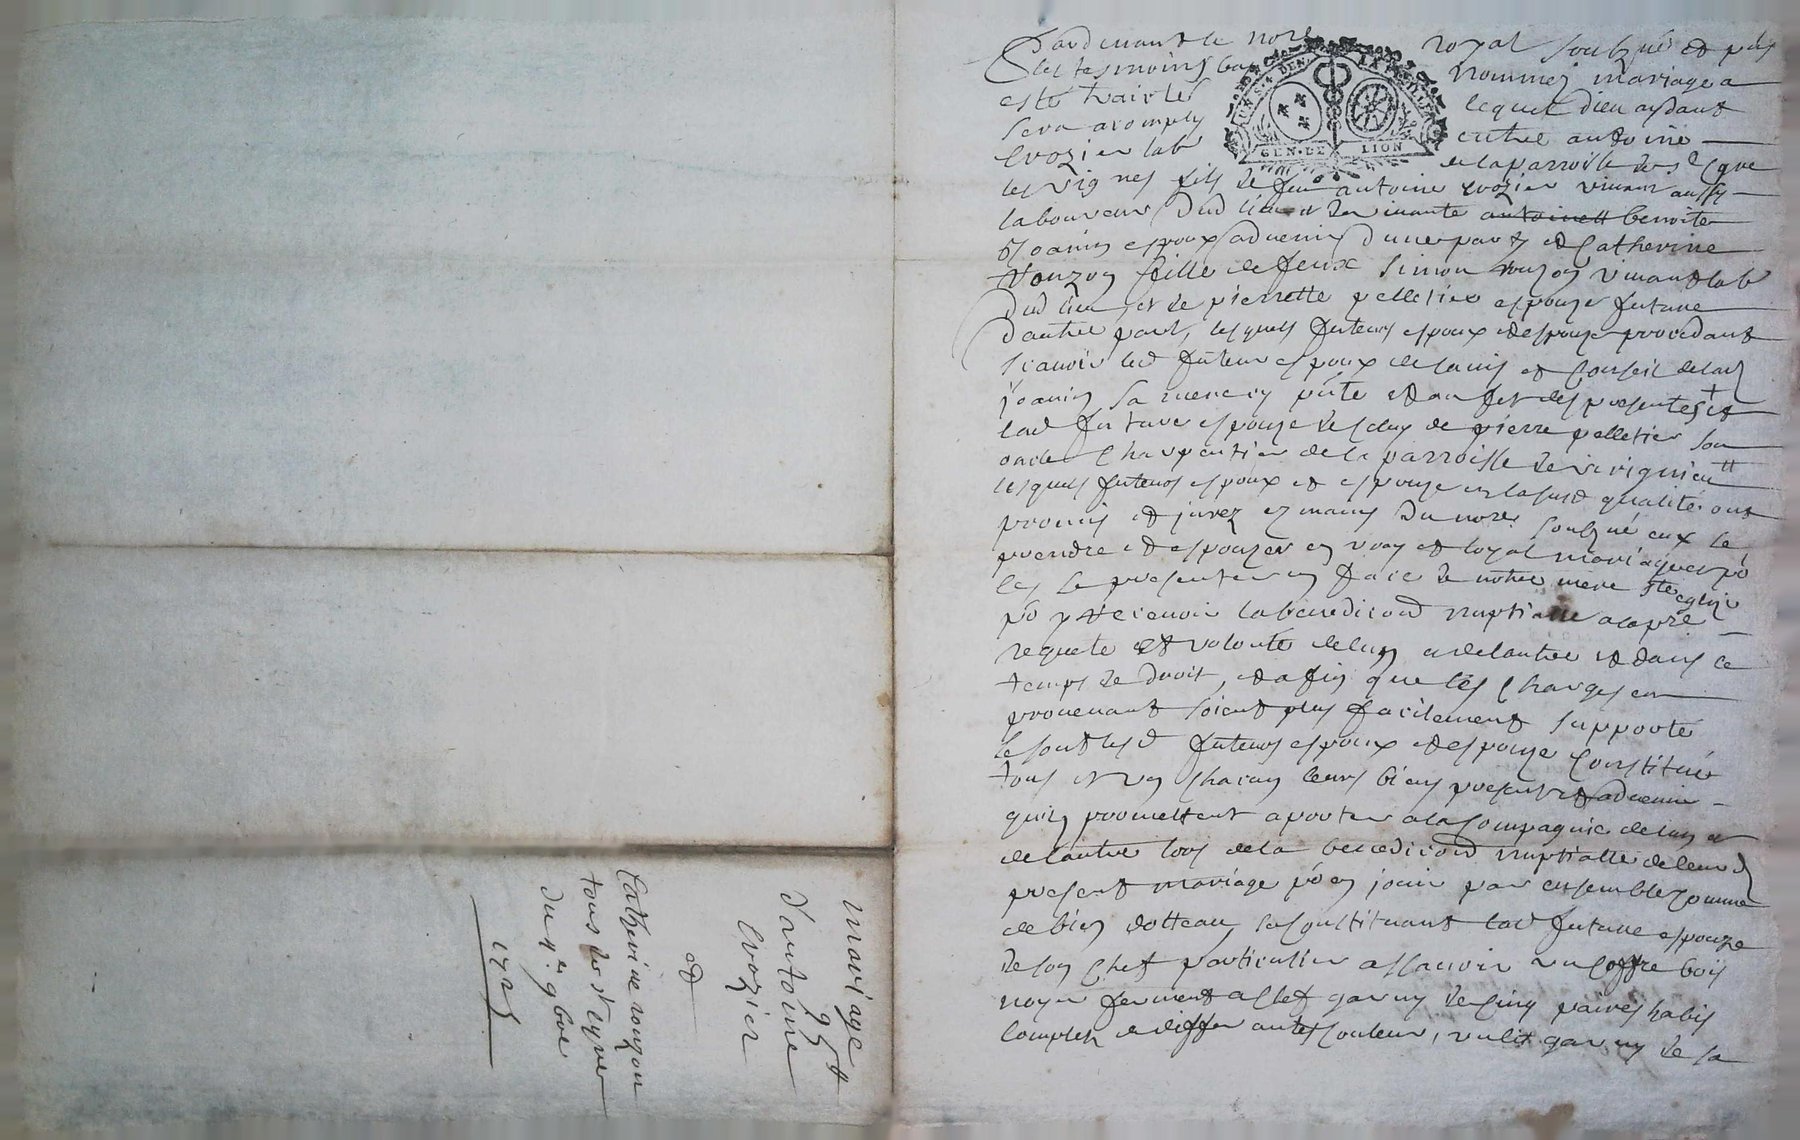 Pardevant le nore royal soubzné et puis
les tesmoins bas nommez mariage a
esté traitté lequel dieu aydant
sera acomply entre antoine
Crozier labr de la parroisse de st Cyre
les vignes fils de feu antoine crozier vivant aussy
laboureur dud lieu et de vivante antoinett benoite
Joanin espoux advenir d'une part et Catherine
ronzon fille de feux simon ronzon vivant labr
dud lieu et de pierrette pelletier espouze future
dautre part, lesquels futeurs espoux et espouze procedant
scavoir led futeur espoux de lavis et Conseil de lad
joanin sa mere cy pnte et au fet des presentes et
lad future espouze de celuy de pierre pelletier son
oncle Charpentier de la parroisse de
lesquels futeurs espoux et espouze en lasusd qualité ont
promis et jurez ez mains du nore soubzné eux se
prendre et espouzer en vray et loyal mariage et pr
les se presenter en face de notre mere ste eglize
pr y recevoir la benediciond nuptialle a la pre
requete et volonté de lun et de lautre et dans le
temps de droit, et afin que les Charges en
provenant soient plus facilement supporté
se sont lesd futeurs espoux et espouze Constitué
tous et un chacun leurs biens present et advenir
quils promettent aporter a la Compagnie de lun et
de lautre lors de la benediciond nuptialle de leurd
present mariage pr en jouir par ensemble comme
de bien dotteau, se Constituant lad future espouze
de son Chef particulier asscavoir un Coffre bois
noyer fermant a Clef garny de Cinq paires habis
Complets de differantes Couleur, un lit garny de sa
GEN. DE LION
mariage
95tt
d'antoine
Crozier
et
Catherine ronzon
tous de st Cyre
du 4e 9bre
1725